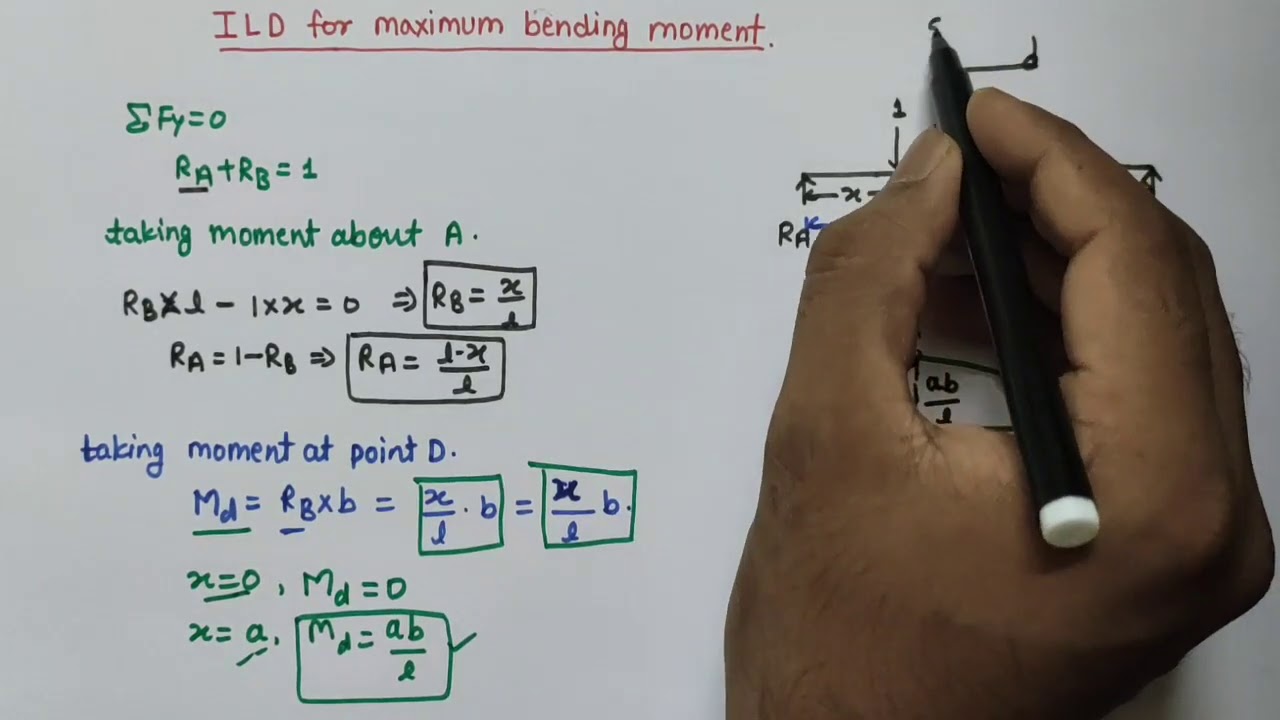 ILD for maximum bending moment.
ΣFy=0
RA+RB=1
taking moment about A.
RB×l − 1×x = 0 ⇒ RB = x/l
RA = 1−RB ⇒ RA = l-x/l
taking moment at point D.
Md = RB×b = x/l · b = x/l b.
x=0, Md=0
x= a, Md= ab/l
d
1
x
RA
ab/l